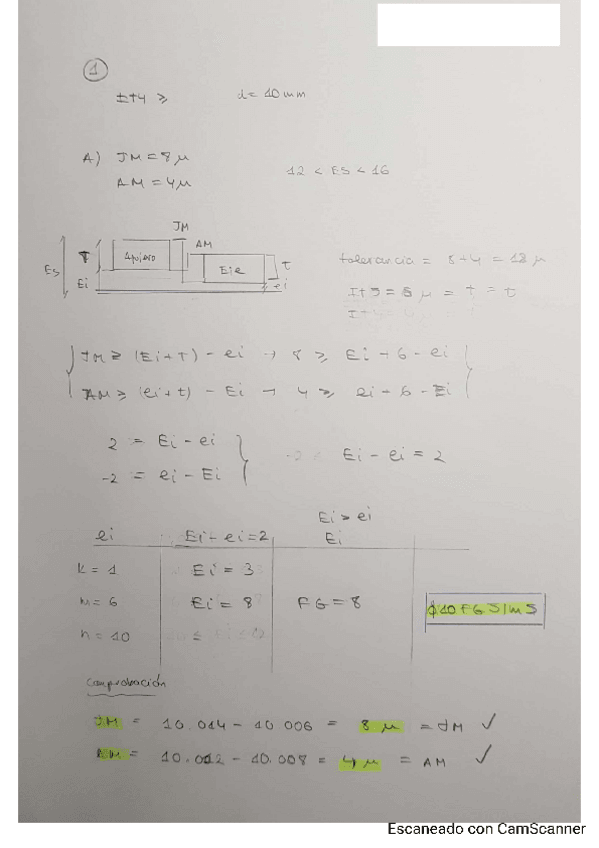 1
d = 10 mm
A) JM = 8 μ
AM = 4 μ
12 < ES < 16
JM
AM
Agujero
Eje
T
t
Es
Ei
ei
tolerancia = 8+4 = 12 μ
JM ≥ (Ei + T) - ei → 8 ≥ Ei + 6 - ei
AM ≥ (ei + t) - Ei → 4 ≥ ei - 6 - Ei
2 = Ei - ei
-2 = ei - Ei
Ei - ei = 2
Ei > ei
ei
Ei - ei = 2
Ei
K = 1
Ei = 3
m = 6
Ei = 8
FG = 8
ϕ 10 FG5/m5
n = 10
Comprobación
JM = 10.014 - 10.006 = 8 μ = JM ✓
AM = 10.012 - 10.008 = 4 μ = AM ✓
Escaneado con CamScanner